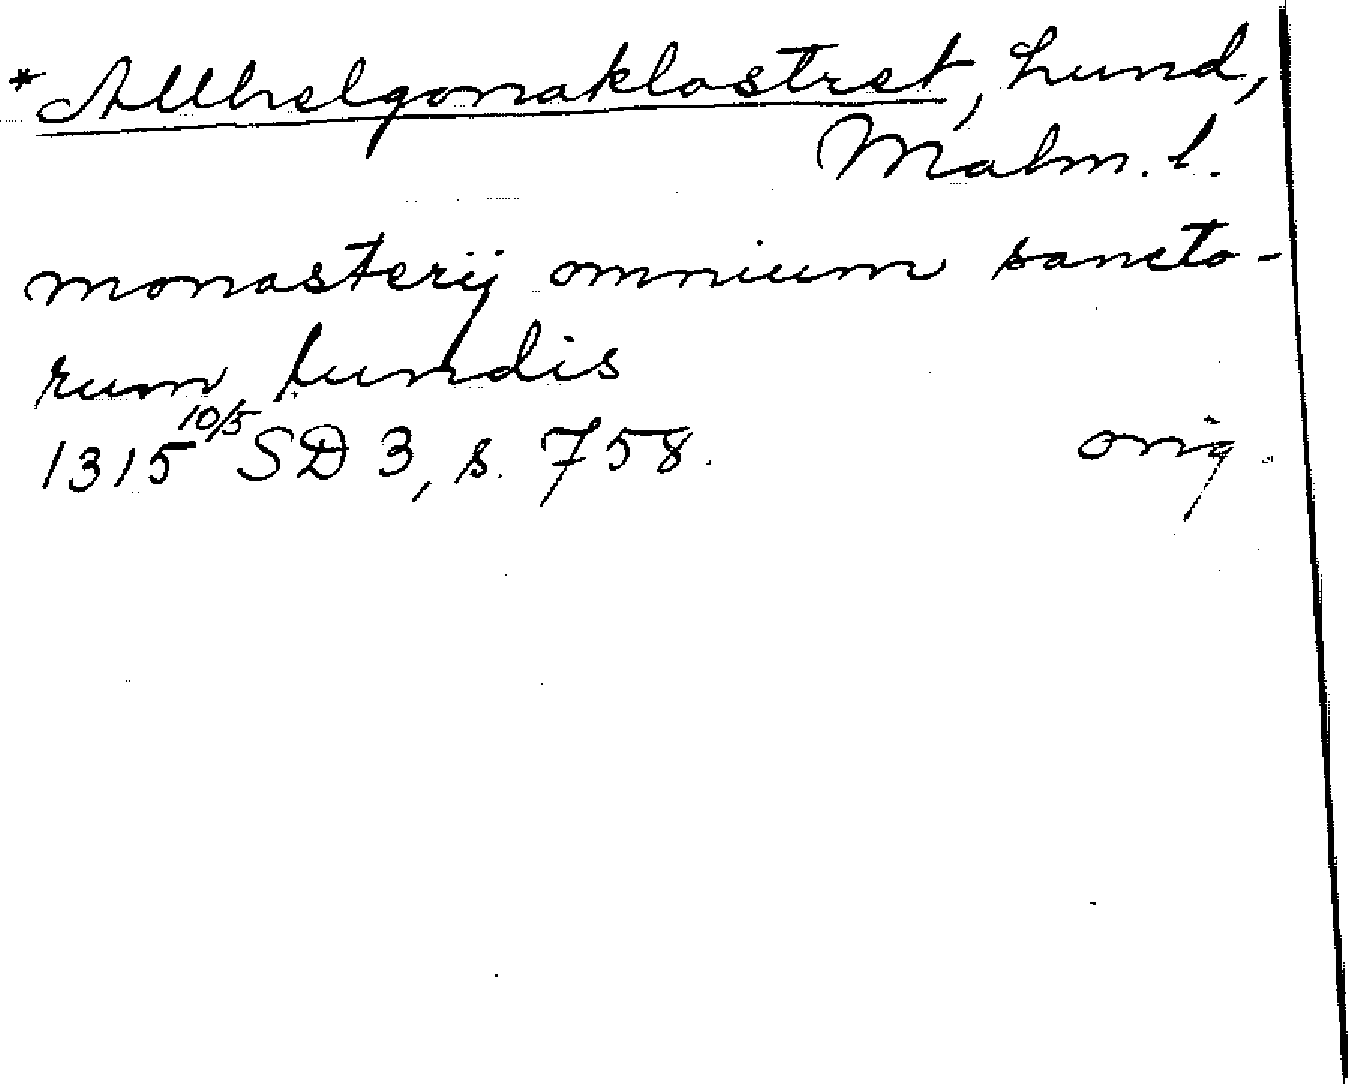 * Allhelgonaklostret, Lund,
Malm. l.
monasterij omnium sancto-
rum Lundis
1315 10/5 SD 3, s. 758. orig.